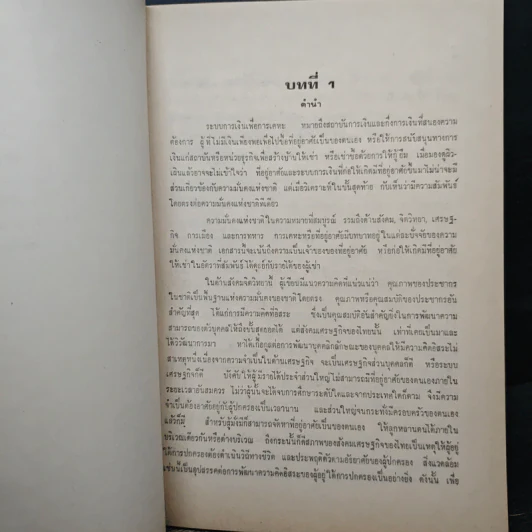 บทที่ 1
คำนำ
ระบบการเงินเพื่อการเคหะ หมายถึงสถาบันการเงินและกึ่งการเงินที่สนองความ
ต้องการ ผู้ที่ไม่มีเงินเพียงพอเพื่อไปซื้อที่อยู่อาศัยเป็นของตนเอง หรือให้การสนับสนุนทางการ
เงินแก่สถาบันหรือหน่วยธุรกิจเพื่อสร้างบ้านให้เช่า หรือเช่าซื้อด้วยการให้กู้ยืม เมื่อมองดูผิว
เผินแล้วอาจจะไม่เข้าใจว่า ที่อยู่อาศัยและระบบการเงินที่ก่อให้เกิดที่อยู่อาศัยขึ้นมาไม่น่าจะมี
ส่วนเกี่ยวข้องกับความมั่นคงแห่งชาติ แต่เมื่อวิเคราะห์ในขั้นสุดท้าย ก็เห็นว่ามีความสัมพันธ์
โดยตรงต่อความมั่นคงแห่งชาติทีเดียว
ความมั่นคงแห่งชาติในความหมายที่สมบูรณ์ รวมถึงด้านสังคม, จิตวิทยา, เศรษฐ-
กิจ การเมือง และการทหาร การเคหะหรือที่อยู่อาศัยมีบทบาทอยู่ในแต่ละปัจจัยของความ
มั่นคงแห่งชาติ เอกสารนี้จะเน้นถึงความเป็นเจ้าของของที่อยู่อาศัย หรือก่อให้เกิดมีที่อยู่อาศัย
ให้เช่าในอัตราที่สัมพันธ์ได้ดุลย์กับรายได้ของผู้เช่า
ในด้านสังคมจิตวิทยานี้ ผู้เขียนมีแนวความคิดที่แน่วแน่ว่า คุณภาพของประชากร
ในชาติเป็นพื้นฐานแห่งความมั่นคงของชาติโดยตรง คุณภาพหรือคุณสมบัติของประชากรอัน
สำคัญที่สุด ได้แก่การมีความคิดที่อิสระ ซึ่งเป็นคุณสมบัติอันสำคัญยิ่งในการพัฒนาความ
สามารถของตัวบุคคลให้ถึงขั้นสุดยอดได้ แต่สังคมเศรษฐกิจของไทยนั้น เท่าที่เคยเป็นมาและ
ได้วิวัฒนาการมา หาได้เกื้อกูลต่อการพัฒนาบุคคลิกลักษณะของบุคคลให้มีความคิดอิสระไม่
สาเหตุหนึ่งเนื่องจากความจำเป็นในด้านเศรษฐกิจ จะเป็นเศรษฐกิจส่วนบุคคลก็ดี หรือระบบ
เศรษฐกิจก็ดี บังคับให้ผู้มีรายได้ประจำส่วนใหญ่ไม่สามารถมีที่อยู่อาศัยของตนเองภายใน
ระยะเวลาอันสมควร ไม่ว่าผู้นั้นจะได้จบการศึกษาระดับใดและจากประเทศใดก็ตาม จึงมีความ
จำเป็นต้องอาศัยอยู่กับผู้ปกครองเป็นเวลานาน และส่วนใหญ่จนกระทั่งมีครอบครัวของตนเอง
แล้วก็มี สำหรับผู้มั่งมีก็สามารถจัดหาที่อยู่อาศัยเป็นของตนเอง ให้ลูกหลานตนได้ภายใน
บริเวณเดียวกันหรือต่างบริเวณ ถึงกระนั้นก็ดีสภาพของสังคมเศรษฐกิจของไทยเป็นเหตุให้ผู้อยู่
ใต้การปกครองต้องดำเนินวิถีทางชีวิต และประพฤติตัวตามอัธยาศัยของผู้ปกครอง สิ่งแวดล้อม
เช่นนี้เป็นอุปสรรคต่อการพัฒนาความคิดอิสระของผู้อยู่ใต้การปกครองเป็นอย่างยิ่ง ดังนั้น เพื่อ